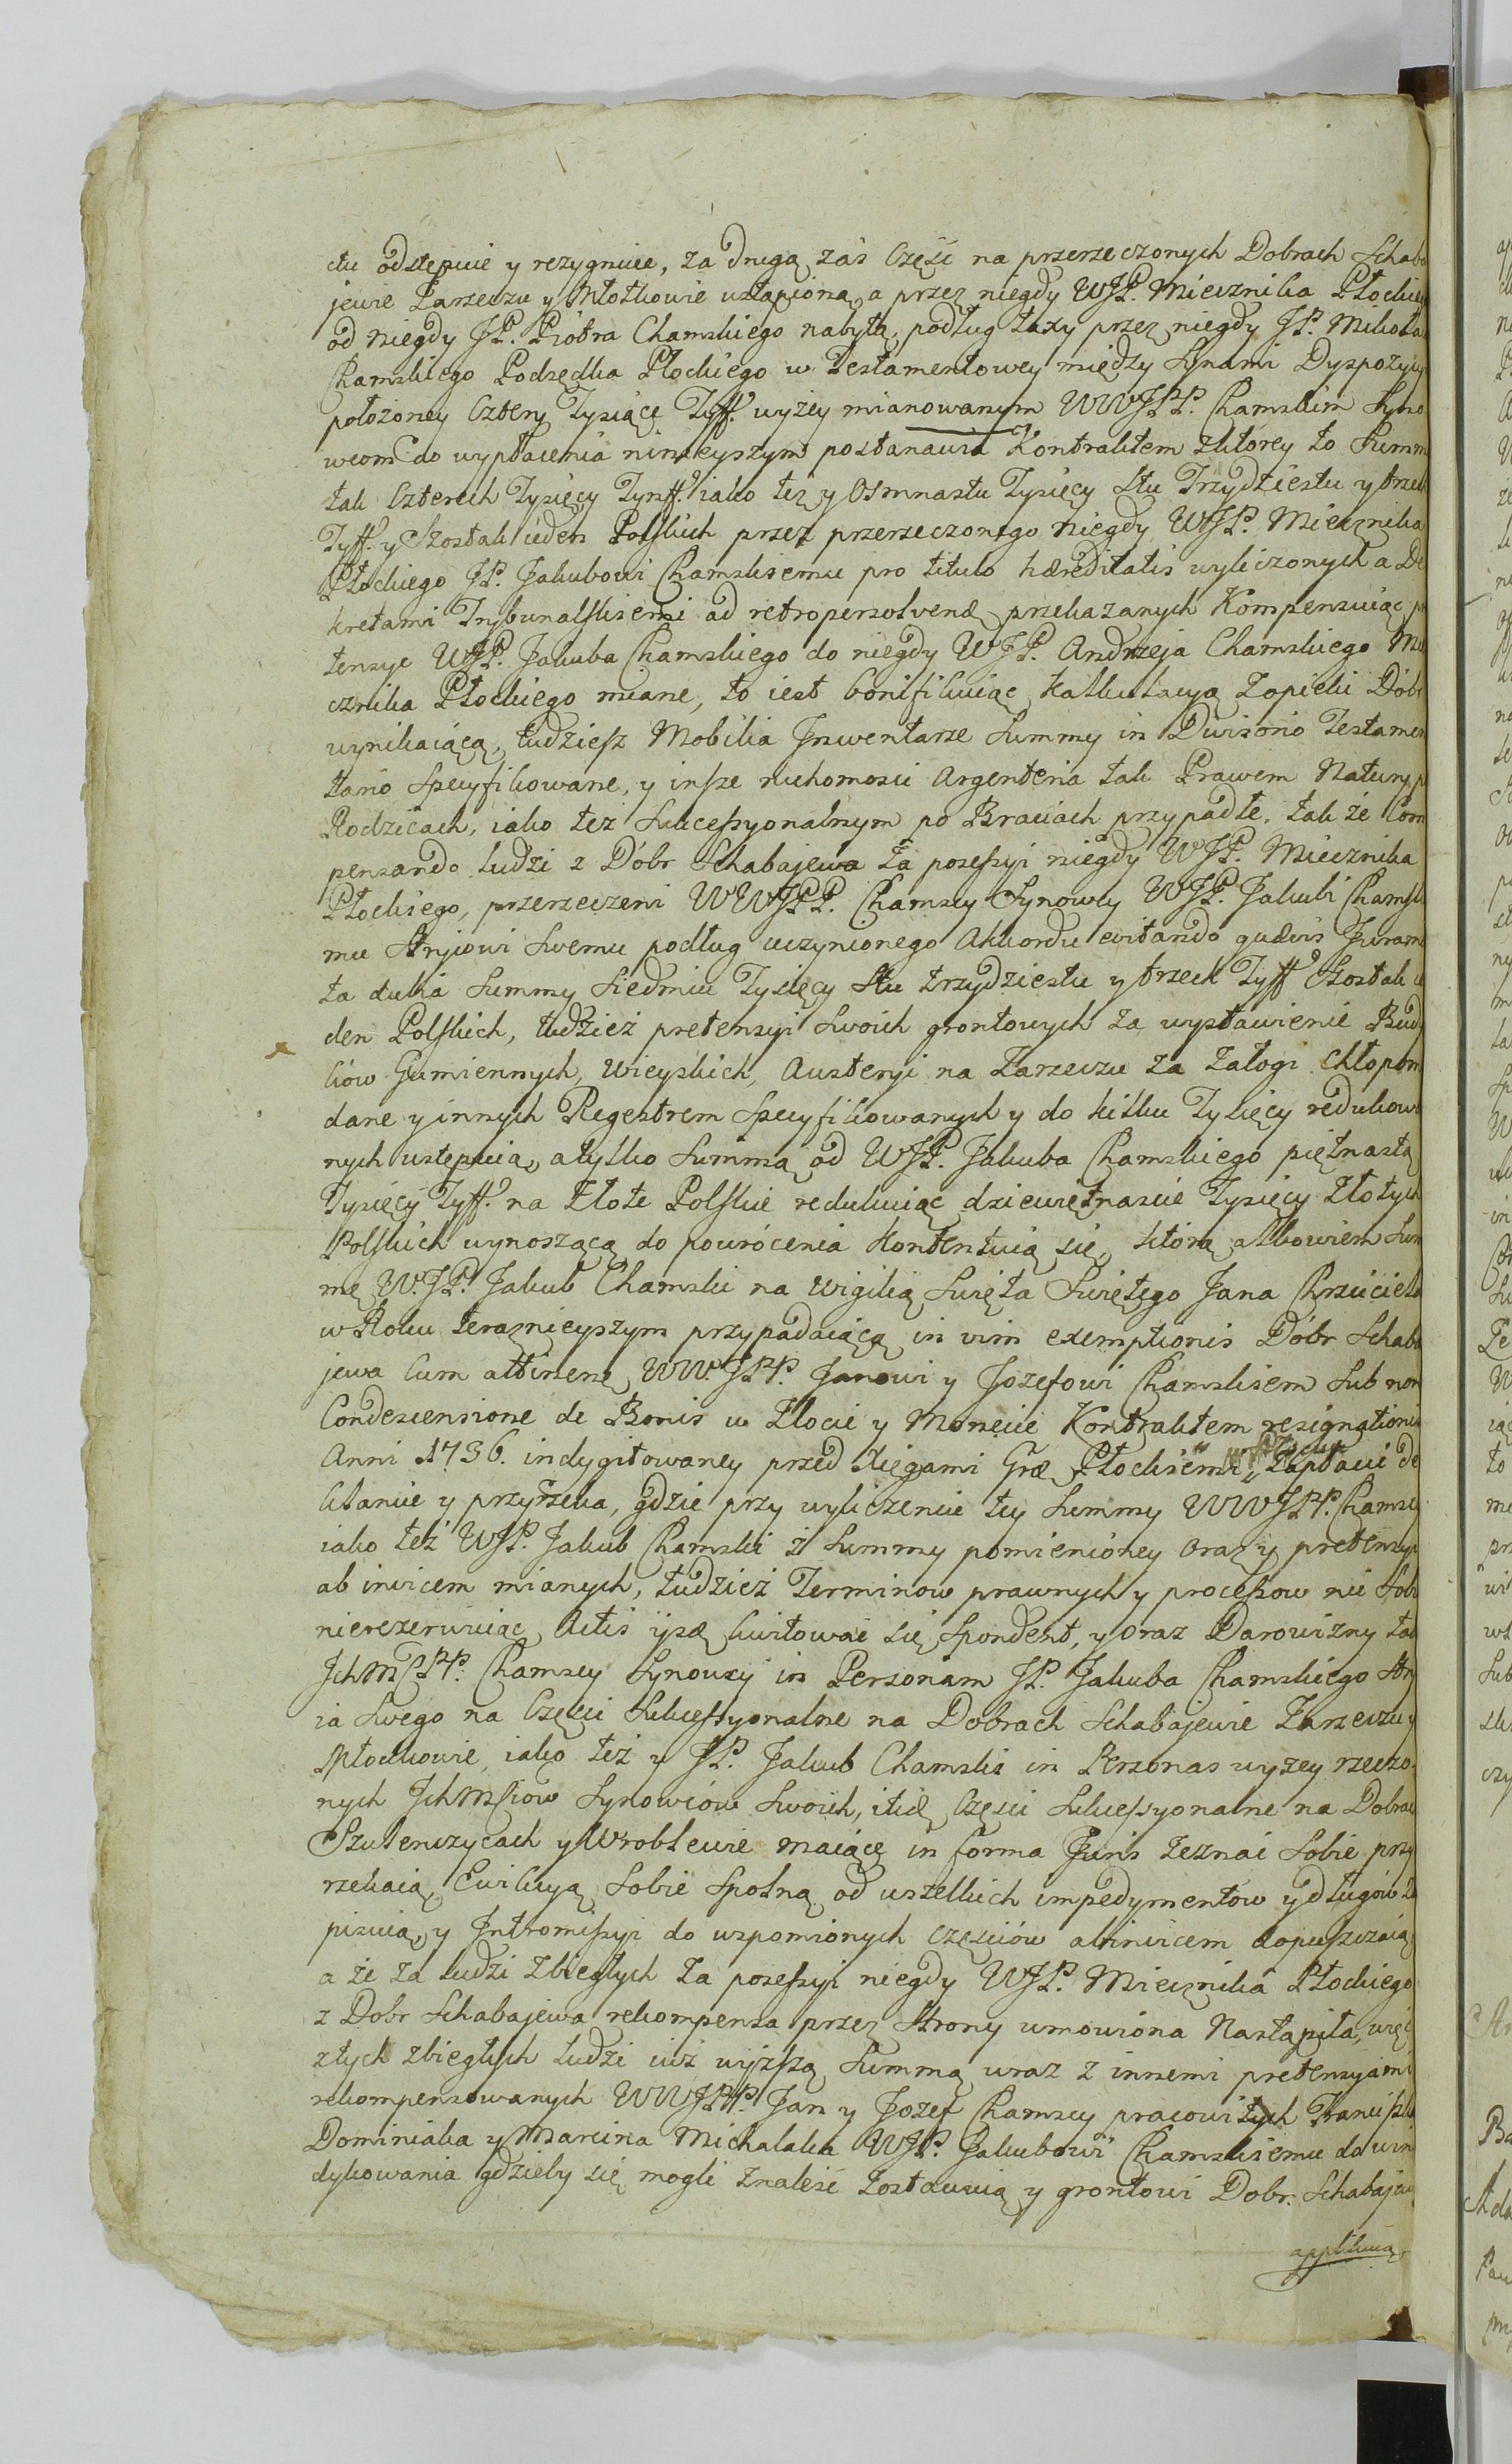 ctu odstępuie y rezygnuie, za drugą zaś Część na przerzeczonych Dobrach Schaba
jewie Zarzeczu y Młotkowie ustąpioną, a przez niegdy WJP. Miecznika Płockieg
od niegdy JP. Piotra Chamskiego nabytą, podług taxy przez niegdy JP. Mikoła
Chamskiego Podsędka Płockiego w Testamentowey między Synami Dyspozycyi
położoney Cztery Tysiące Tyff. wyżey mianowanym WWJPP. Chamskim Syno
wcom do wypłacenia ninieyszym postanawia Kontraktem z którey to Summ
tak Czterech Tysięcy Tynff. iako też y Osmnastu Tysięcy Stu Trzydziestu y trzech
Tyff. y Szostak ieden Polskich przez przerzeczonego niegdy WJP. Miecznika
Płockiego JP. Jakubowi Chamskiemu pro titulo hæreditatis wyliczonych a De
kretami Trybunalskiemi ad retropersolvend. przekazanych Kompensuiąc pr
tensye WJP. Jakuba Chamskiego do niegdy WJP. Andrzeja Chamskiego Mie
cznika Płockiego miane, to iest bonifikuiąc kalkulacyą z opieki Dóbr
wynikaiącą, tudziesz Mobilia Inwentarze Summy in Divisorio Testamen
tario Specyfikowane, y insze ruchomosci Argenteria tak Prawem Natury p
Rodzicach, iako też Sukcessyonalnym po Braciach przypadłe. tak że Com
pensando ludzi z Dóbr Schabajewa za posessyi niegdy WJP. Miecznika
Płockiego, przerzeczeni WWJPP. Chamscy Synowcy WJP. Jakubi Chamski
mu Stryiowi Swemu podług uczynionego Akkordu evitando quævis Juram
ta dukta Summy Siedmiu Tysięcy Stu trzydziestu y trzech Tyff. Szostak ie
den Polskich, tudzież pretensyi Swoich grontowych za wystawienie Budy
ków Gumiennych, Wieyskich, Austeryi na Zarzeczu za Załogi chłopom
dane y innych Regestrem Specyfikowanych y do kilku Tysięcy redukow
nych ustępuią, a tylko Summą od WJP. Jakuba Chamskiego piętnastą
Tysięcy Tyff. na Złote Polskie redukuiąc dziewiętnascie Tysięcy Złotych
Polskich wynoszącą do powrócenia kontentuią się, którą albowiem Sum
mę W.JP. Jakub Chamski na Wigilią Swięta Swiętego Jana Chrzciciela
w Roku teraznieyszym przypadaiącą in vim exemptionis Dóbr Schaba
jewa cum attinen. WW.JPP. Janowi y Jozefowi Chamskiem Sub non
Condescensione de Bonis w Złocie y Monecie Kontraktem resignationis
Anni 1736. indygitowaney przed Xięgami Græ Płockiemi zapłacić de
klaruie y przyrzeka, gdzie przy wyliczeniu tey Summy WWJPP. Chamscy
iako też WJP. Jakub Chamski z Summy pomienioney oraz y pretensyi
ab invicem mianych, tudzież Terminow prawnych y processow nic Sobie
nierezerwuiąc Actis iisd. kwitować się Spondent, y oraz Darowizny tak
Ich Mć PP. Chamscy Synowcy in Personam JP. Jakuba Chamskiego Stry
ia Swego na Częsci Sukcessyonalne na Dobrach Schabajewie Zarzeczu y
Młotkowie, iako też y JP. Jakub Chamski in Personas wyżey rzeczo
nych Ich Mciow Synowców Swoich, itid. Częsci Sukcessyonalne na Dobrach
Szulenczycach y Wroblewie maiące in forma Juris zeznać Sobie przy
rzekaią, Ewikcyą Sobie Spolną od wszelkich impedymentow y długów za
pisuią, y Intromissyi do wspomionych częsciów abinvicem dopuszczaią
a że za ludzi zbiegłych za posessyi niegdy WJP. Miecznika Płockiego
z Dobr Schabajewa rekompensa przez Strony umowiona Nastąpiła, więc
z tych zbiegłych ludzi iuż wyższą Summą wraz z innemi pretensyami
rekompensowanych WWJPP. Jan y Jozef Chamscy pracowitych Franciszka
Dominiaka y Marcina Michalaka WJP. Jakubowi Chamskiemu do win
dykowania gdzieby się mogli znaleść zostawuią y grontowi Dobr. Schabajew
applikuią